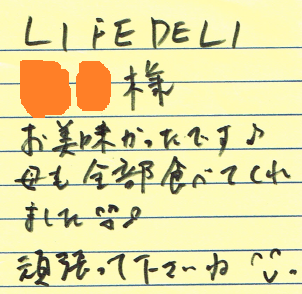 LIFE DELI
様
お美味かったです♪
母も全部食べてくれ
ました^^♪
頑張って下さいね ^^